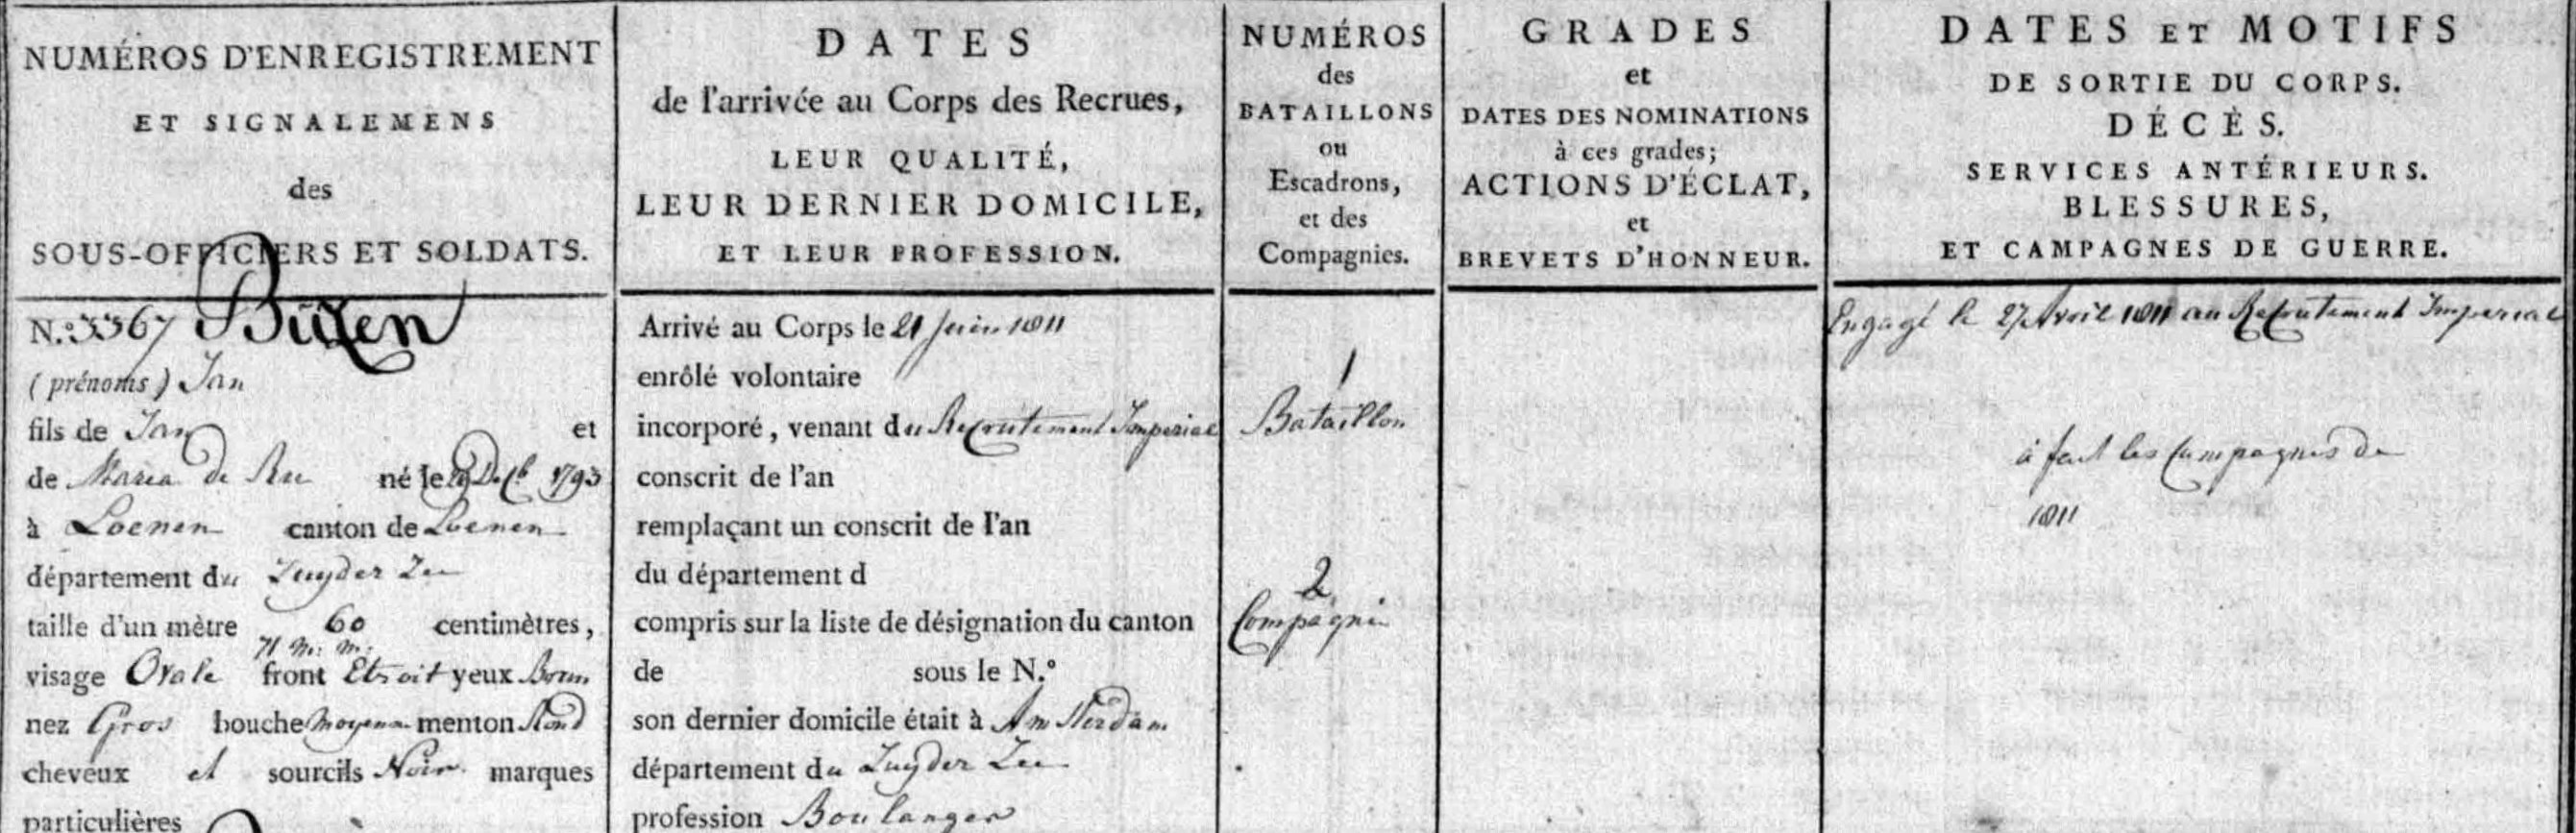 NUMÉROS D'ENREGISTREMENT
ET SIGNALEMENS
des
SOUS-OFFICIERS ET SOLDATS.
N.º 3367 Büzen
(prénoms) Jan
fils de Jan et
de Maria de Rue né le Decb 1793
à Loenen canton de Loenen
département du Zuyder Zee
taille d'un mètre 60 centimètres,
71 m: m:
visage Ovale front Etroit yeux Brun
nez Gros bouche moyenne menton Rond
cheveux et sourcils Noir marques
particulières
DATES
de l'arrivée au Corps des Recrues,
LEUR QUALITÉ,
LEUR DERNIER DOMICILE,
ET LEUR PROFESSION.
Arrivé au Corps le 21 Juin 1811
enrôlé volontaire
incorporé, venant du Recrutement Imperial
conscrit de l'an
remplaçant un conscrit de l'an
du département d
compris sur la liste de désignation du canton
de sous le N.º
son dernier domicile était à Amsterdam
département du Zuyder Zee
profession Boulanger
NUMÉROS
des
BATAILLONS
ou
Escadrons,
et des
Compagnies.
1
Bataillon
2
Compagnie
GRADES
et
DATES DES NOMINATIONS
à ces grades;
ACTIONS D'ÉCLAT,
et
BREVETS D'HONNEUR.
DATES ET MOTIFS
DE SORTIE DU CORPS.
DÉCÈS.
SERVICES ANTÉRIEURS.
BLESSURES,
ET CAMPAGNES DE GUERRE.
Engagé le 27 Avril 1811 au Recrutement Imperial
à fait les Campagnes de
1811